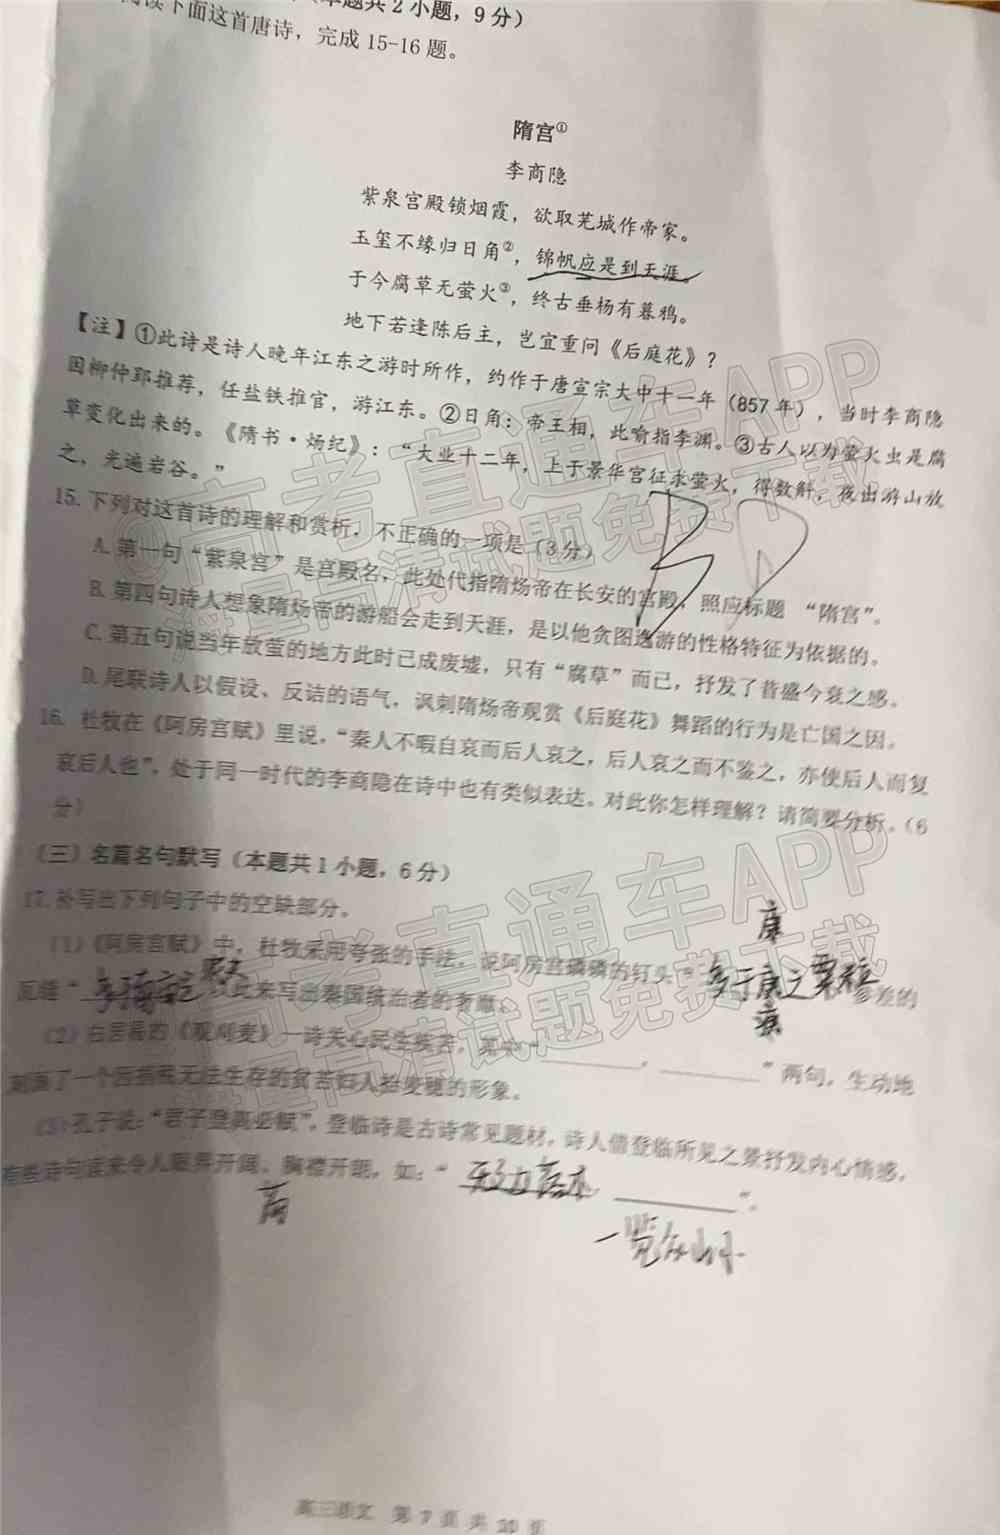 阅读下面这首唐诗，完成15-16题。
（本题共2小题，9分）
隋宫①
李商隐
紫泉宫殿锁烟霞，欲取芜城作帝家。
玉玺不缘归日角②，锦帆应是到天涯。
于今腐草无萤火③，终古垂杨有暮鸦。
地下若逢陈后主，岂宜重问《后庭花》？
【注】①此诗是诗人晚年江东之游时所作，约作于唐宣宗大中十一年（857年），当时李商隐
因柳仲郢推荐，任盐铁推官，游江东。②日角：帝王相，此喻指李渊。③古人以为萤火虫是腐
草变化出来的。《隋书·炀纪》：“大业十二年，上于景华宫征求萤火，得数斛，夜出游山放
之，光遍岩谷。”
15. 下列对这首诗的理解和赏析，不正确的一项是（3分）
A. 第一句“紫泉宫”是宫殿名，此处代指隋炀帝在长安的宫殿，照应标题 “隋宫”。
B. 第四句诗人想象隋炀帝的游船会走到天涯，是以他贪图逸游的性格特征为依据的。
C. 第五句说当年放萤的地方此时已成废墟，只有“腐草”而已，抒发了昔盛今衰之感。
D. 尾联诗人以假设、反诘的语气，讽刺隋炀帝观赏《后庭花》舞蹈的行为是亡国之因。
16. 杜牧在《阿房宫赋》里说，“秦人不暇自哀而后人哀之，后人哀之而不鉴之，亦使后人而复
哀后人也”，处于同一时代的李商隐在诗中也有类似表达。对此你怎样理解？请简要分析。（6
分）
（三）名篇名句默写（本题共1小题，6分）
17. 补写出下列句子中的空缺部分。
（1）《阿房宫赋》中，杜牧采用夸张的手法，说阿房宫磷磷的钉头“多于庾之粟粒 参差的
瓦缝“ 以此来写出秦国统治者的奢靡。
（2）白居易的《观刈麦》一诗关心民生疾苦，其中“________，________”两句，生动地
刻画了一个因捐税无法生存的贫苦妇人拾麦穗的形象。
（3）孔子说：“君子登高必赋”，登临诗是古诗常见题材，诗人借登临所见之景抒发内心情感，
有些诗句读来令人眼界开阔、胸襟开朗，如：“ ________”。
一览众山小
高三语文 第 7 页 共 10 页
高考直通车APP
海量高清试题免费下载
高考直通车APP
海量高清试题免费下载